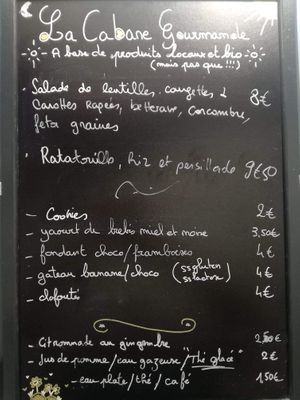 La Cabane Gourmande
A base de produits locaux et bio
(mais pas que !!!)
- Salade de lentilles, courgettes &
Carottes Rapées, betterave, concombre, 8€
feta graines
- Ratatouille, riz et persillade 9€50
- Cookies 2€
- yaourt de brebis miel et 3,50€
- fondant choco/framboises 4€
- gateau banane/choco (ss gluten 4€
ss lactose)
- clafoutis 4€
- Citronnade au gingembre
- Jus de pomme/eau gazeuse/"Thé glacé" 2€
- eau plate/thé/café 1,50€